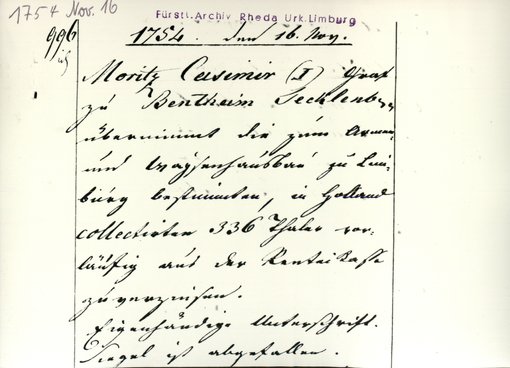 1754 Nov. 16
Fürstl. Archiv Rheda Urk. Limburg
996
1754. den 16. Nov.
Moritz Casimir (I) Graf
zu Bentheim Tecklenb.
übernimmt die zum Armen
und Waysenhausbau zu Lim-
burg bestimmten, in Holland
collectirten 336 Thaler vor-
läufig aus der Renteikasse
zu verzinsen.
Eigenhändige Unterschrift.
Siegel ist abgefallen.